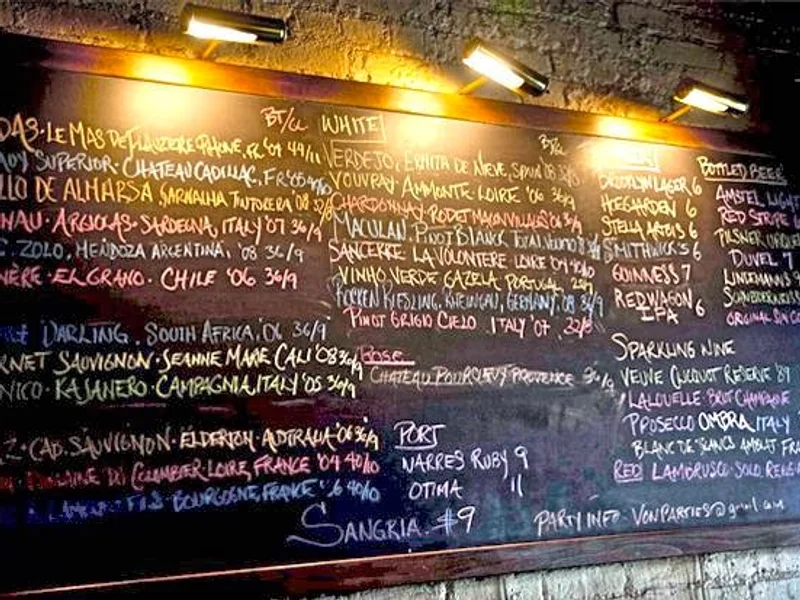 BT/GL
LE MAS DE FR '07 44/11
SUPERIOR · CHATEAU CADILLAC, FR '05 40/10
DE ALMARSA GARNACHA TINTORERA 08 32/8
ARGIOLAS · SARDEGNA, ITALY '07 36/9
ZOLO, MENDOZA ARGENTINA, '08 36/9
EL GRANO · CHILE '06 36/9
DARLING, SOUTH AFRICA, 06 36/9
SAUVIGNON · JEANNE MARIE CALI '08 36/9
NICO · KAJANERO · CAMPAGNIA, ITALY '05 36/9
CAB. SAUVIGNON · ELDERTON · AUSTRALIA '06 36/9
DU COLOMBIER · LOIRE, FRANCE '04 40/10
FILS BOURGOGNE, FRANCE 40/10
WHITE BT/
VERDEJO, ERMITA DE NIEVE, SPAIN '08
VOUVRAY AMMONTE · LOIRE '06 36/9
CHARDONNAY · RODET MACON VILLAGES '06 36/9
MACULAN, PINOT BLANCK
SANCERRE LA VOLONTERE LOIRE
VINHO VERDE GAZELA PORTUGAL
RIESLING, RHEINGAU, GERMANY, '08 36/9
PINOT GRIGIO CIELO ITALY '07, 32/8
ROSE
CHATEAU POURCIEUX PROVENCE 36/9
PORT
NARRES RUBY 9
OTIMA 11
SANGRIA · #9
BROOKLYN LAGER 6
HOEGAARDEN 6
STELLA ARTOIS 6
SMITHWICK'S 6
GUINNESS 7
RED WAGON IPA 6
BOTTLED BEER
AMSTEL LIGHT
RED STRIPE
PILSNER URQUE
DUVEL 7
LINDEMANS
ORIGINAL SIN
SPARKLING WINE
VEUVE CLICQUOT RESERVE '89
LALOUELLE · BRUT CHAMPAGNE
PROSECCO OMBRA, ITALY
BLANC DE BLANCS
RED LAMBRUSCO · SOLO
PARTY INFO · VONPARTIES@gmail.com